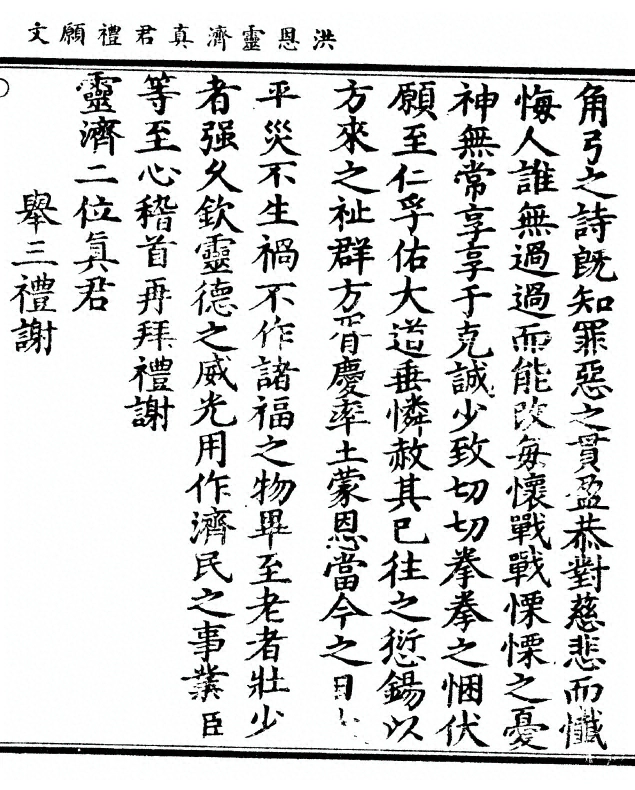 洪恩靈濟真君禮願文
角弓之詩既知罪惡之貫盈恭對慈悲而懺
悔人誰無過過而能改每懷戰戰慄慄之憂
神無常享享于克誠少致切切拳拳之悃伏
願至仁孚佑大道垂憐赦其已往之愆錫以
方來之祉群方胥慶率土蒙恩當今之日
平災不生禍不作諸福之物畢至老者壯少
者强久欽靈德之威光用作濟民之事業臣
等至心稽首再拜禮謝
靈濟二位眞君
舉三禮謝